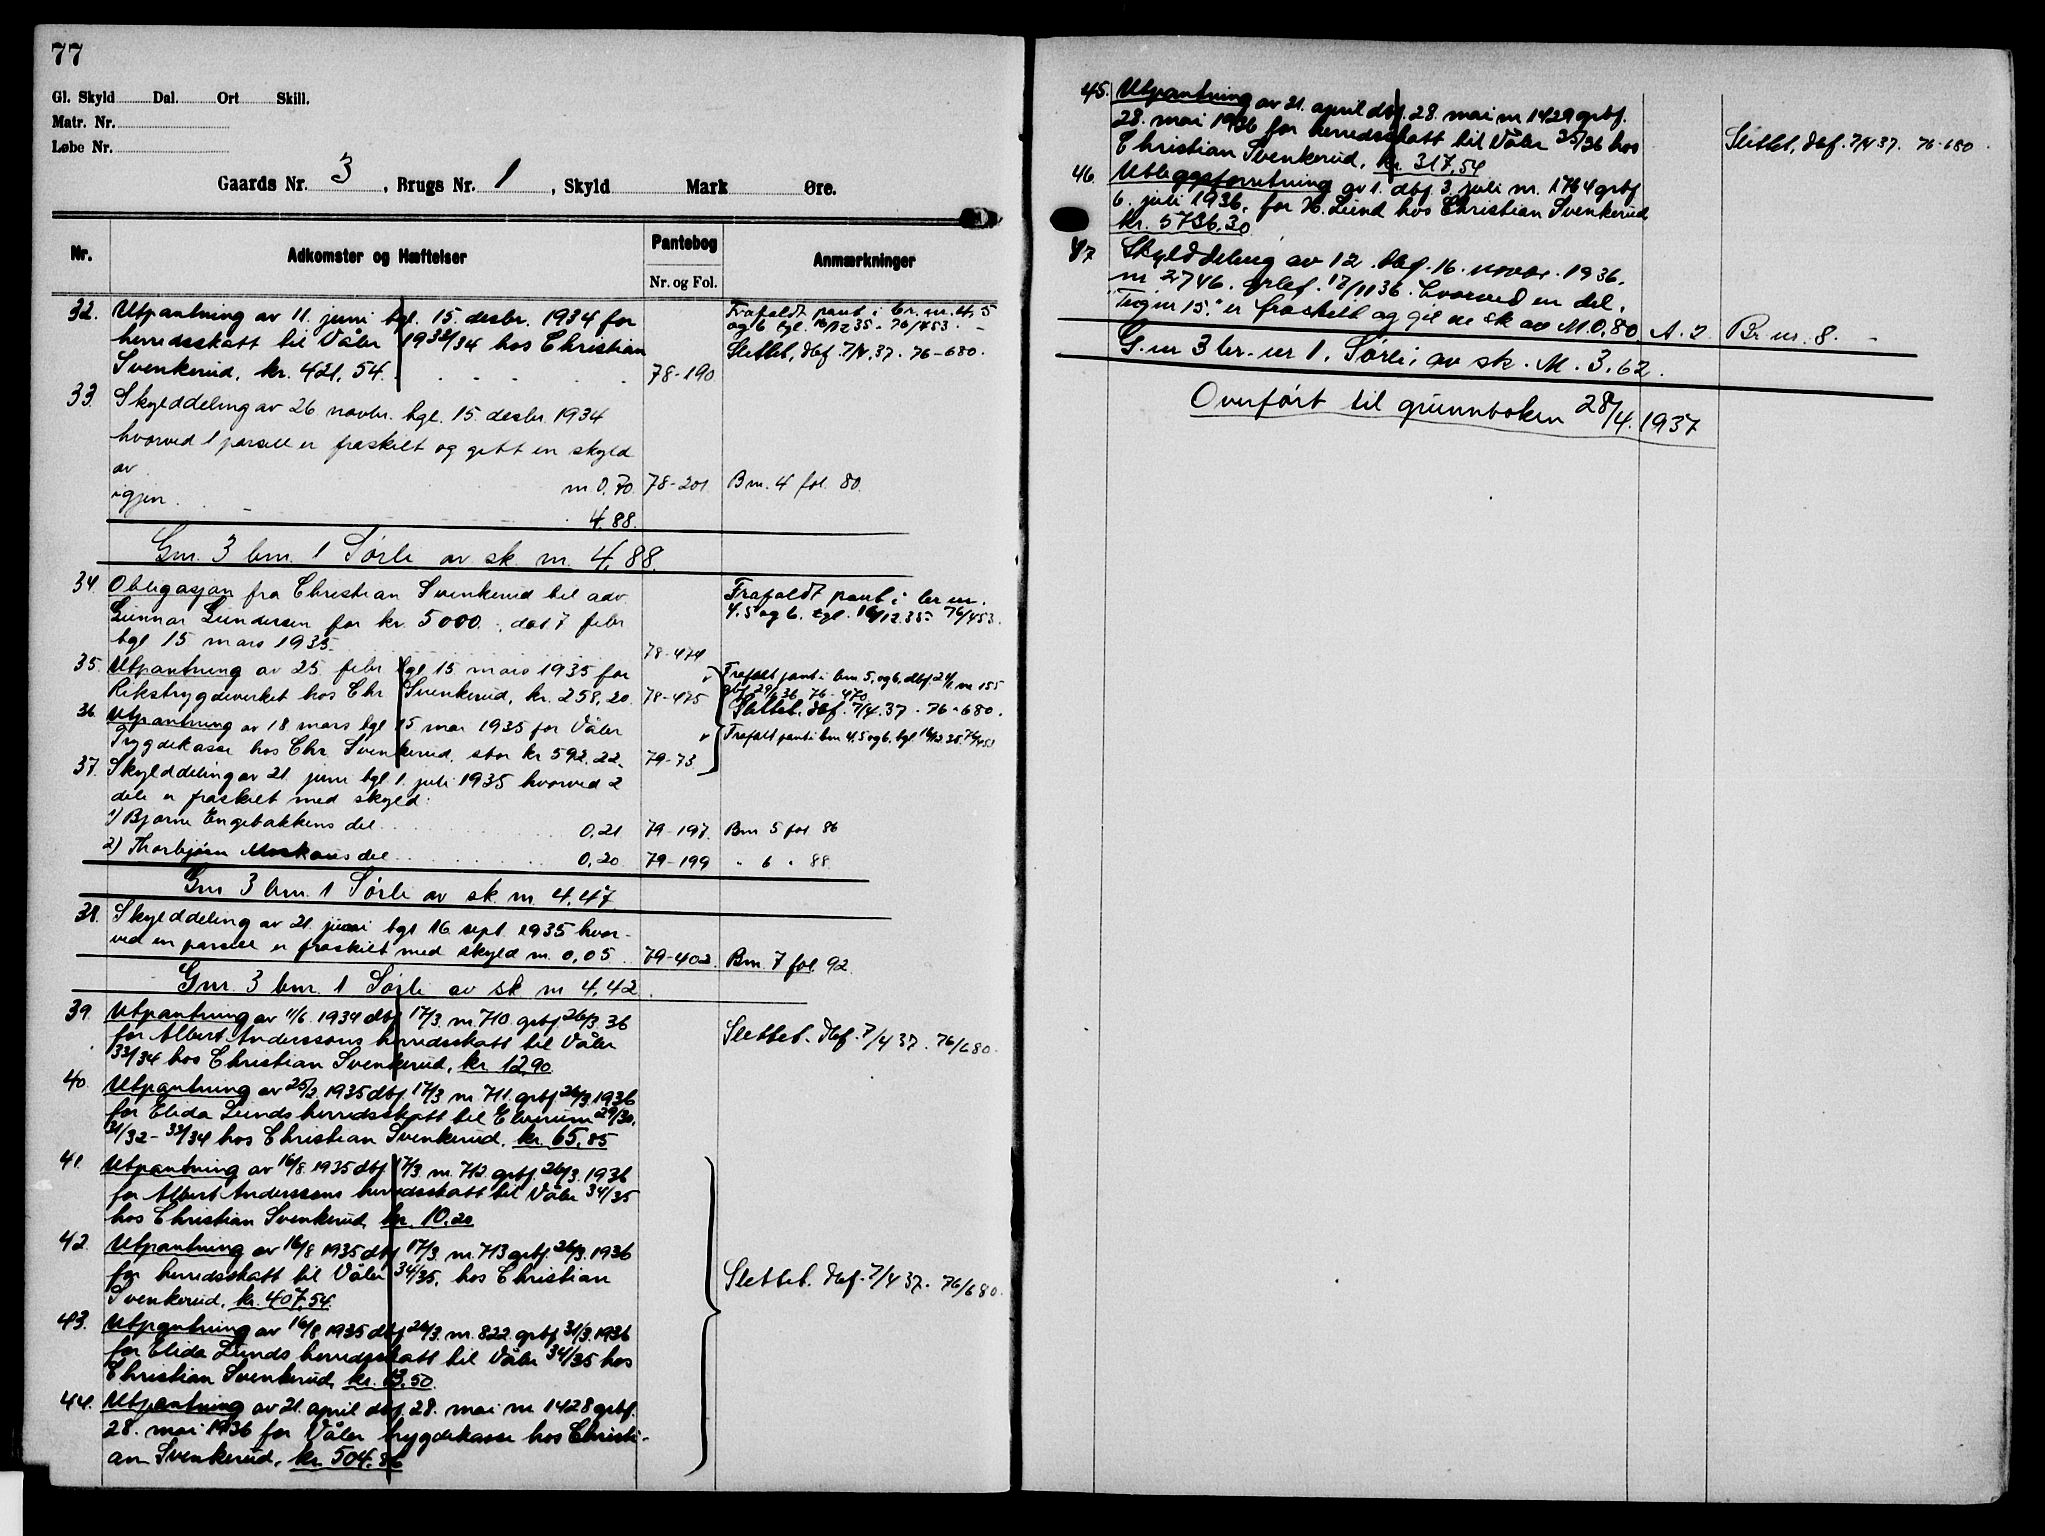 77
Gl. Skyld Dal. Ort Skill.
Matr. Nr.
Løbe Nr.
Gaards Nr. 3, Brugs Nr. 1, Skyld Mark Øre.
Nr. Adkomster og Hæftelser Pantebog Anmærkninger
Nr. og Fol.
32. Utpantning av 11. juni tgl. 15. desbr. 1934 for
herredsskatt til Våler 1933/34 hos Christian
Svenkerud, kr. 421,54. 78-190
Frafaldt pant i br. nr. 4, 5
og 6 tgl. 16/12 35. 76/453.
Slettet, dbf. 7/4.37. 76-680.
33. Skylddeling av 26 novbr. tgl. 15 desbr 1934
hvorved 1 parsell er fraskilt og gitt en skyld
av m 0,70 78-201 Bm. 4 fol. 80.
igjen. 4.88.
Gnr. 3 bnr. 1 Sørli av sk. m. 4,88.
34. Obligasjon fra Christian Svenkerud til adv
Gunnar Gundersen for kr. 5000.-, dat. 7 febr
tgl 15 mars 1935. 78-474
Frafaldt pant i br nr.
4. 5 og 6. tgl. 16/12.35. 76/453.
35. Utpantning av 25. febr tgl 15 mars 1935 for
Rikstrygdeverket hos Chr Svenkerud, kr. 258,20. 78-475
Frafalt pant i bnr 5, og 6, dbf. 24/1 nr 155
gbf. 29/1 36 76-470
Slettet. dbf. 7/4.37. 76-680.
36. Utpantning av 18 mars tgl 15 mai 1935 for Våler
Trygdekasse hos Chr. Svenkerud, stor kr 592,22. 79-73
Frafalt pant i bnr 4. 5 og 6. tgl 16/12 35. 76/453
37. Skylddeling av 21. juni tgl. 1. juli 1935 hvorved 2
dele er fraskilt med skyld:
1) Bjarne Engebakkens del 0,21 79-197. Bnr 5 fol 86
2) Thorbjørn del 0,20 79-199 " 6 " 88.
Gnr 3 bnr. 1 Sørli av sk m 4.47
38. Skylddeling av 21. juni tgl 16. sept. 1935 hvor-
ved en parsell er fraskilt med skyld m. 0,05 79-402. Bm. 7 fol. 92.
Gnr. 3 bnr. 1 Sørli av sk m 4,42.
39. Utpantning av 11/6. 1934 dbf 17/3. nr 710. grbf 26/3. 36
for Albert Anderssons herredsskatt til Våler
33/34 hos Christian Svenkerud, kr 12,90
Slettet. dbf. 7/4 37. 76/680.
40. Utpantning av 25/2 1935 dbf 17/3 nr 711. grbf. 26/3 1936
for Elida Lunds herredsskatt til Elverum 29/30,
31/32 - 33/34 hos Christian Svenkerud, kr. 65,85
41. Utpantning av 16/8. 1935 dbf 17/3 nr. 712. grbf. 26/3. 1936
for Albert Anderssons herredsskatt til Våler 34/35
hos Christian Svenkerud kr. 10,20
42. Utpantning av 16/8 1935 dbf 17/3. nr. 713 grbf. 26/3. 1936
for herredsskatt til Våler 34/35, hos Christian
Svenkerud, kr. 407,54.
Slettet. dbf. 7/4 37. 76/680.
43. Utpantning av 16/8 1935 dbf 26/3. nr. 822. grbf 31/3. 1936
for Elida Lunds herredsskatt til Våler 34/35 hos
Christian Svenkerud kr. 13,50.
44. Utpantning av 21. april dbf 28. mai nr 1428 grbf.
28. mai 1936 for Våler trygdekasse hos Christi-
an Svenkerud, kr. 504,86
45. Utpantning av 21. april dbf. 28. mai nr 1429 grbf.
28. mai 1936 for herredsskatt til Våler 35/36 hos
Christian Svenkerud, kr. 317,54
Slettet, dbf. 7/4 37. 76-680.
46. Utleggsforretning av 1. dbf 3. juli nr. 1764 grbf
6. juli 1936, for H. Lund hos Christian Svenkerud
kr. 5736,30
47 Skylddeling av 12. dbf. 16. novbr. 1936.
nr 2746. grbf. 18/11 36. hvorved en del,
"Teigen 15." er fraskilt og gitt en sk av M. 0,80 A. 2. Br. nr. 8.
G. nr 3 br. nr 1. Sørli, av sk. M. 3.62.
Overført til grunnboken 28/4. 1937